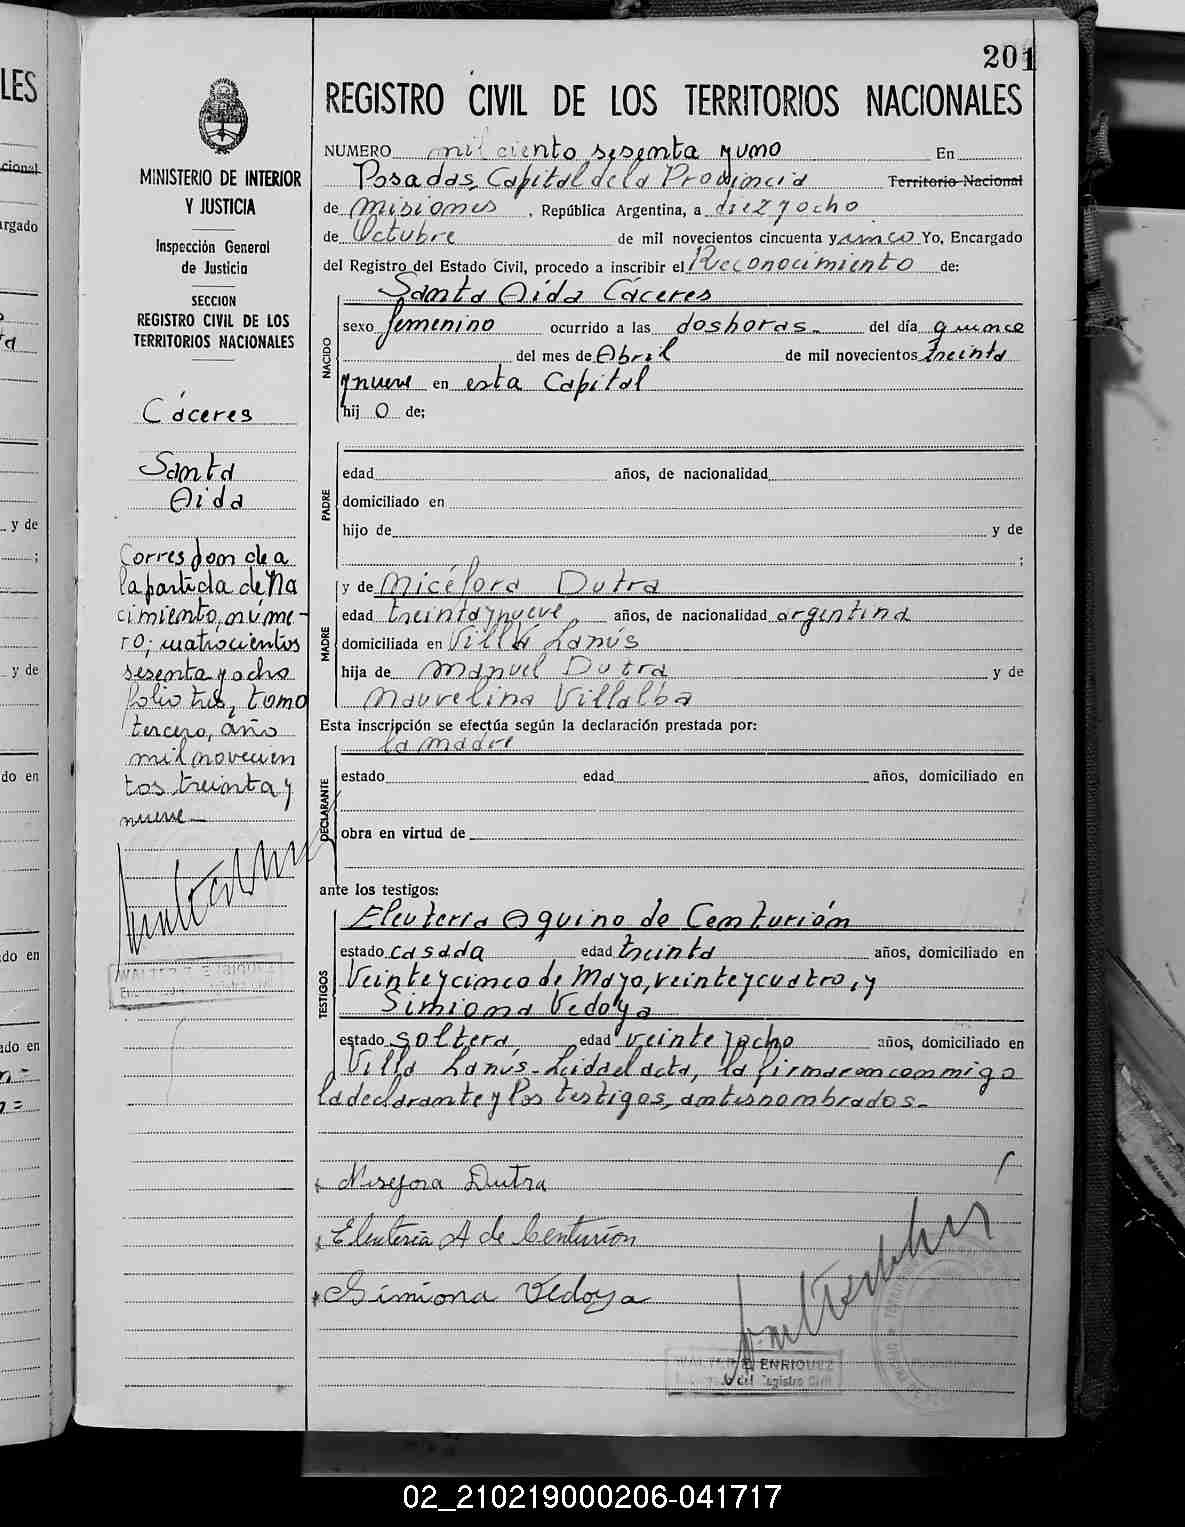 201
REGISTRO CIVIL DE LOS TERRITORIOS NACIONALES
MINISTERIO DE INTERIOR
Y JUSTICIA
Inspección General
de Justicia
SECCION
REGISTRO CIVIL DE LOS
TERRITORIOS NACIONALES
Cáceres
Santa
Aida
Corresponde a
la partida de Na
cimiento, núme-
ro; cuatrocientos
sesenta y ocho
folio tres, tomo
tercero, año
mil novecien
tos treinta y
nueve.-
NUMERO mil ciento sesenta y uno En
Posadas, Capital de la Provincia Territorio Nacional
de Misiones, República Argentina, a diez y ocho
de Octubre de mil novecientos cincuenta y cinco Yo, Encargado
del Registro del Estado Civil, procedo a inscribir el Reconocimiento de:
Santa Aida Cáceres
NACIDO
sexo femenino ocurrido a las dos horas.- del día quince
del mes de Abril de mil novecientos treinta
y nueve en esta Capital
hij o de;
PADRE
edad años, de nacionalidad
domiciliado en
hijo de y de
;
MADRE
y de Nicéfora Dutra
edad treinta y nueve años, de nacionalidad argentina
domiciliada en Villa Lanús
hija de Manuel Dutra y de
Maurelina Villalba
Esta inscripción se efectúa según la declaración prestada por:
la madre
DECLARANTE
estado edad años, domiciliado en
obra en virtud de
ante los testigos:
TESTIGOS
Eleuteria Aquino de Centurión
estado casada edad treinta años, domiciliado en
Veinte y cinco de Mayo, veinte y cuatro, y
Simiona Vedoya
estado soltera, edad veinte y ocho años, domiciliado en
Villa Lanús.- Leida el acta, la firmaron conmigo
la declarante y los testigos, antes nombrados.-
Nisefora Dutra
Eleuteria A de Centurión
Simiona Vedoya
E. ENRIQUEZ
del Registro Civil
02_210219000206-041717